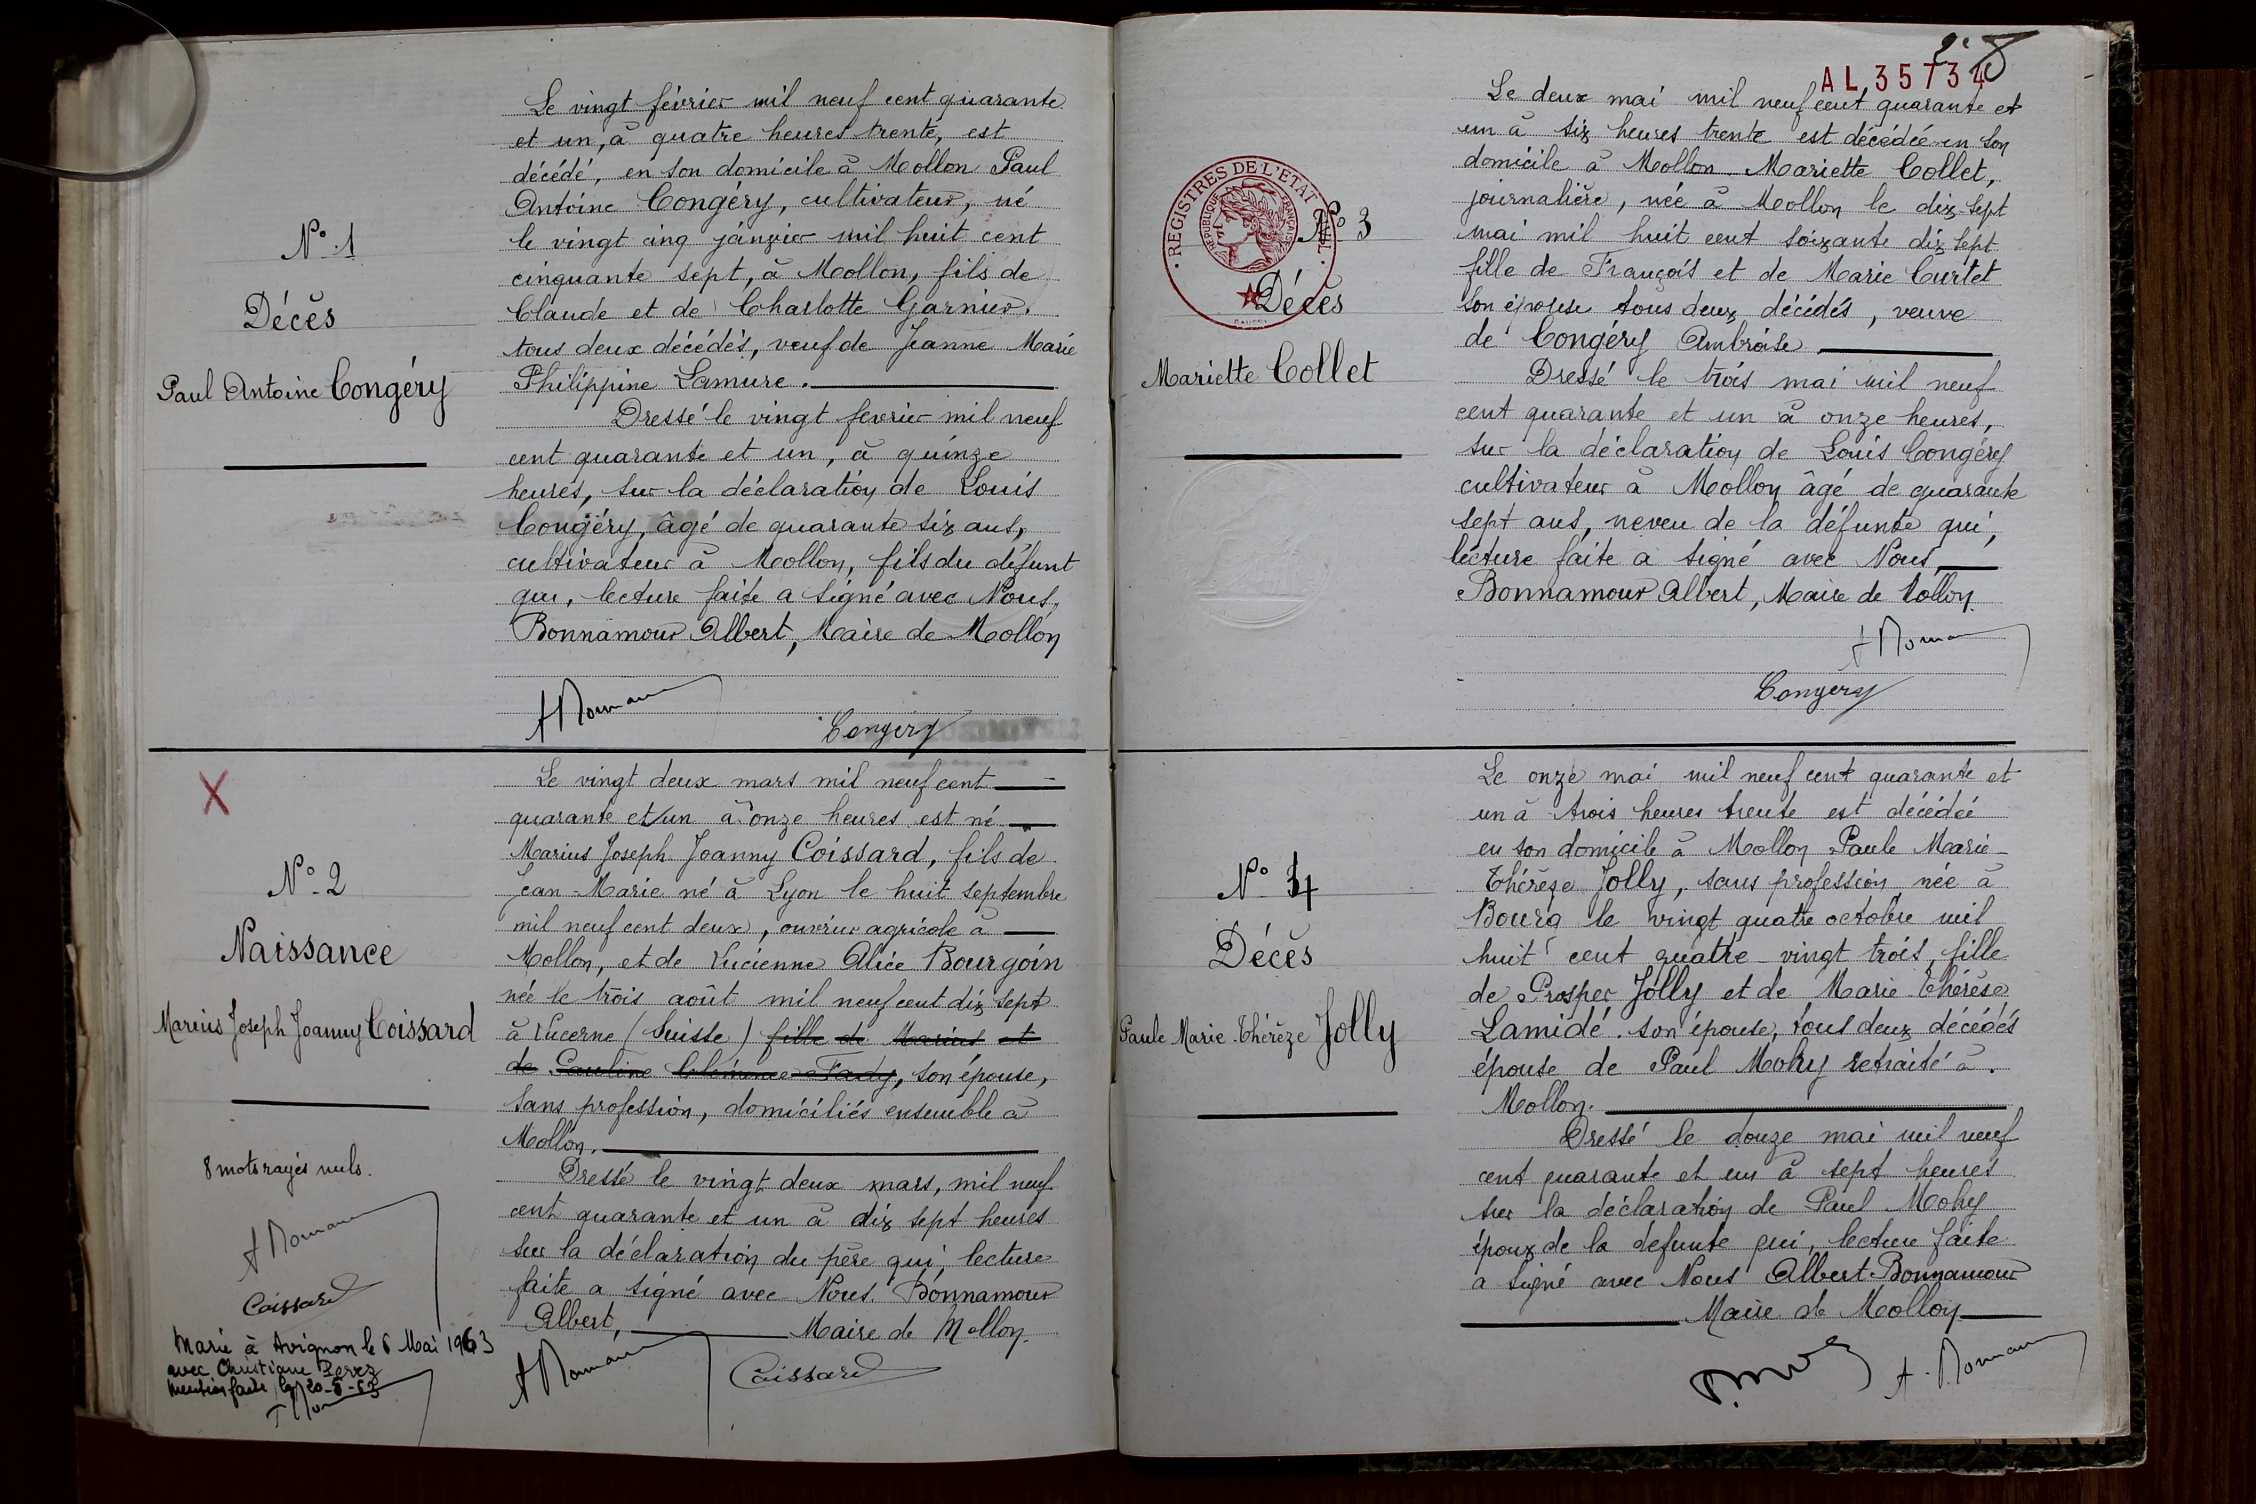 N° 1
Décès
Paul Antoine Congéry
Le vingt février mil neuf cent quarante
et un, à quatre heures trente, est
décédé, en son domicile à Mollon Paul
Antoine Congéry, cultivateur, né
le vingt cinq janvier mil huit cent
cinquante sept, à Mollon, fils de
Claude et de Charlotte Garnier.
tous deux décédés, veuf de Jeanne Marie
Philippine Lamure.
Dressé le vingt fevrier mil neuf
cent quarante et un, à quinze
heures, sur la déclaration de Louis
Congéry, âgé de quarante six ans,
cultivateur à Mollon, fils du défunt
qui, lecture faite a signé avec Nous,
Bonnamour Albert, Maire de Mollon
Congery
N° 2
Naissance
Marius Joseph Joanny Coissard
8 mots rayés nuls.
Coissard
Marié à Avignon le 6 Mai 1963
avec Christiane Perez
Mention faite le 20-5-63
Le vingt deux mars mil neuf cent
quarante et un à onze heures est né
Marius Joseph Joanny Coissard, fils de
Jean-Marie né à Lyon le huit septembre
mil neuf cent deux, ouvrier agricole à
Mollon, et de Lucienne Alice Bourgoin
née le trois août mil neuf cent dix sept
à Lucerne (Suisse) fille de Marius et
de Pauline Clémence Fady, son épouse,
sans profession, domiciliés ensemble à
Mollon.
Dressé le vingt deux mars, mil neuf
cent quarante et un à dix sept heures
sur la déclaration du père qui, lecture
faite a signé avec Nous. Bonnamour
Albert, Maire de Mollon.
Coissard
2
AL 35734
REGISTRES DE L'ETAT CIVIL
REPUBLIQUE FRANÇAISE
N° 3
Décès
Mariette Collet
Le deux mai mil neuf cent quarante et
un à six heures trente est décédée en son
domicile à Mollon Mariette Collet,
journalière, née à Mollon le dix sept
mai mil huit cent soixante dix sept
fille de François et de Marie Curtet
son épouse tous deux décédés, veuve
de Congéry Ambroise
Dressé le trois mai mil neuf
cent quarante et un à onze heures,
sur la déclaration de Louis Congéry
cultivateur à Mollon âgé de quarante
sept ans, neveu de la défunte qui,
lecture faite a signé avec Nous
Bonnamour Albert, Maire de Mollon.
Congery
N° 4
Décès
Paule Marie-Thérèze Jolly
Le onze mai mil neuf cent quarante et
un à trois heures trente est décédée
en son domicile à Mollon Paule Marie-
Thérèse Jolly, sans profession née à
Bourg le vingt quatre octobre mil
huit cent quatre-vingt trois, fille
de Prosper Jolly et de Marie Thérèse
Lamidé son épouse, tous deux décédés
épouse de Paul Mohy retraité à
Mollon.
Dressé le douze mai mil neuf
cent quarante et un à sept heures
sur la déclaration de Paul Mohy
époux de la défunte qui, lecture faite
a signé avec Nous Albert Bonnamour
Maire de Mollon